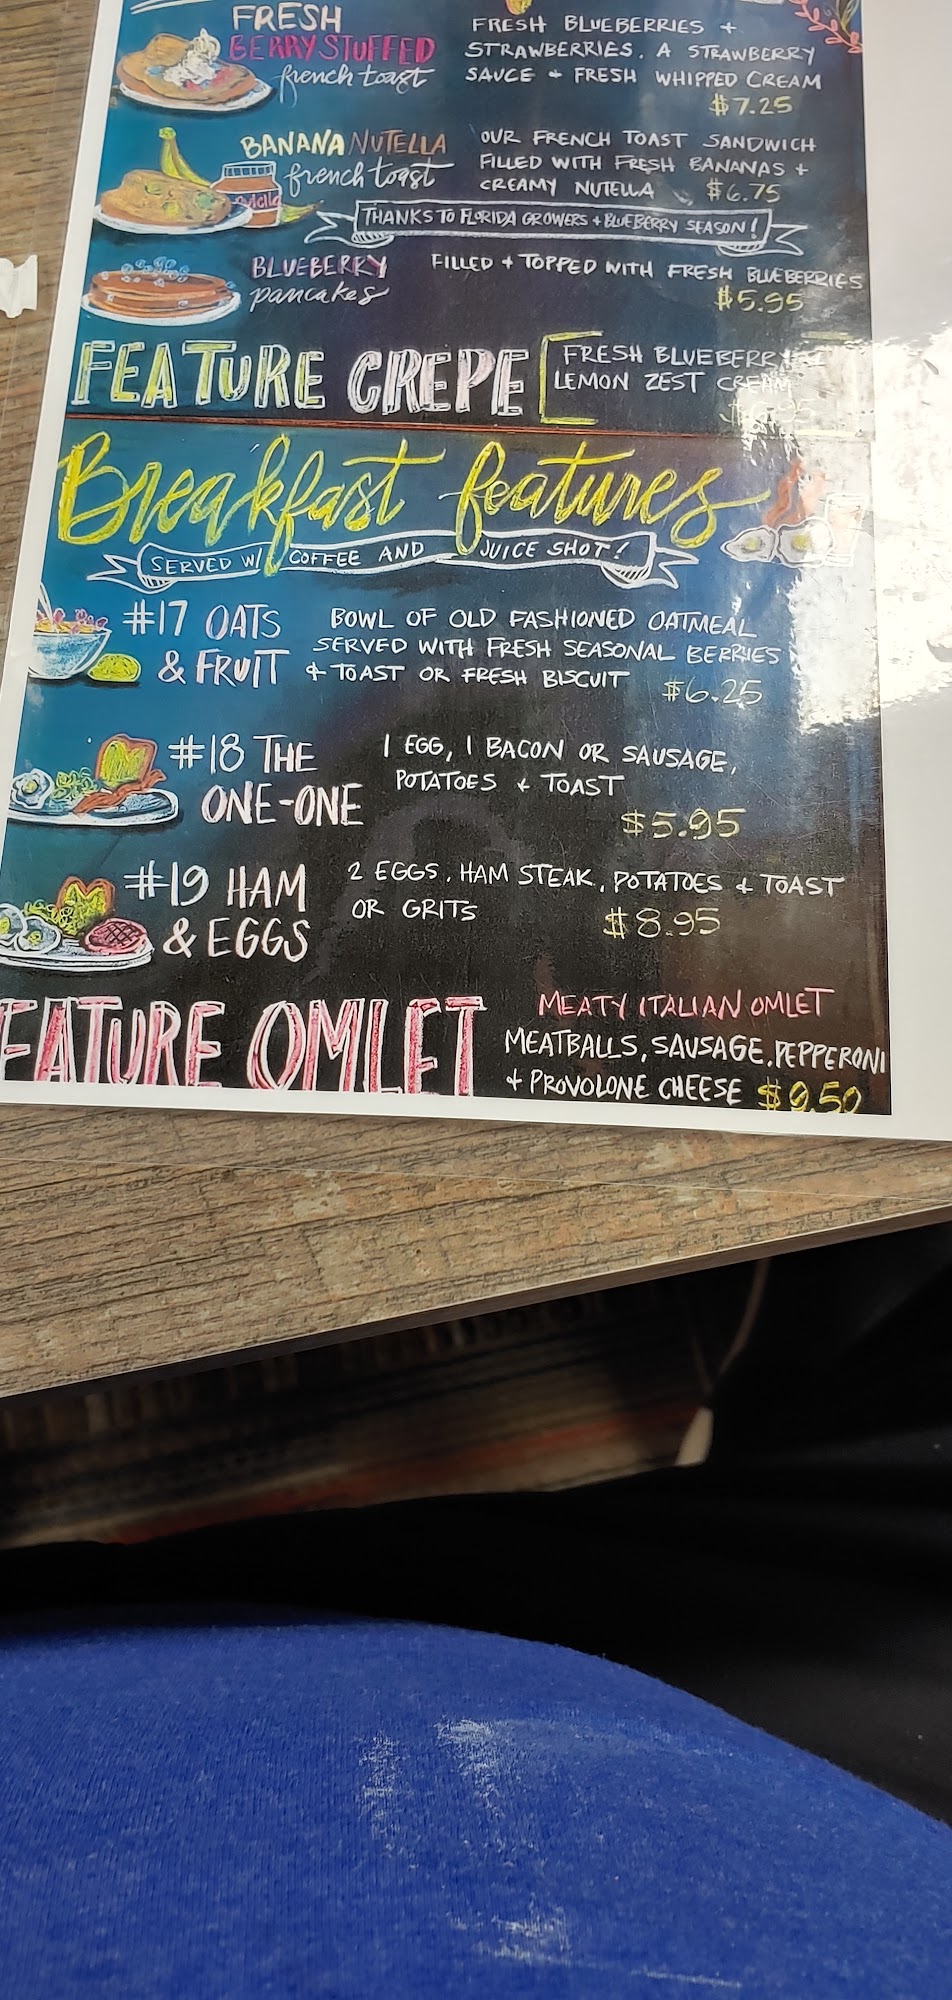 FRESH
BERRY STUFFED
french toast
FRESH BLUEBERRIES +
STRAWBERRIES, A STRAWBERRY
SAUCE + FRESH WHIPPED CREAM
$7.25
BANANA NUTELLA
french toast
OUR FRENCH TOAST SANDWICH
FILLED WITH FRESH BANANAS +
CREAMY NUTELLA $6.75
THANKS TO FLORIDA GROWERS + BLUEBERRY SEASON!
BLUEBERRY
pancakes
FILLED + TOPPED WITH FRESH BLUEBERRIES
$5.95
FEATURE CREPE
FRESH BLUEBERRY
LEMON ZEST CREAM
Breakfast features
SERVED W/ COFFEE AND JUICE SHOT!
#17 OATS
& FRUIT
BOWL OF OLD FASHIONED OATMEAL
SERVED WITH FRESH SEASONAL BERRIES
+ TOAST OR FRESH BISCUIT $6.25
#18 THE
ONE-ONE
1 EGG, 1 BACON OR SAUSAGE,
POTATOES + TOAST
$5.95
#19 HAM
& EGGS
2 EGGS, HAM STEAK, POTATOES + TOAST
OR GRITS $8.95
EATURE OMLET
MEATY ITALIAN OMLET
MEATBALLS, SAUSAGE, PEPPERONI
+ PROVOLONE CHEESE $9.50